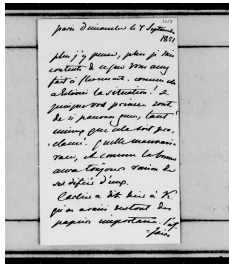 paris Dimanche le 7 Septembre
1851
plus j'y pense, plus je suis
contente de ce que vous avez
fait à Clermont. comme cela
a dessiné la situation! &
puisque vos princes sont
de si pauvres gens, tant
mieux que cela soit pro-
clamé. quelle mauvaise
race, et comme la bonne
aura toujours raison de
ses défiés d'eux.
Carlier a dit hier à K.
qu'on avait surtout des
papiers importans. l'af-
faire